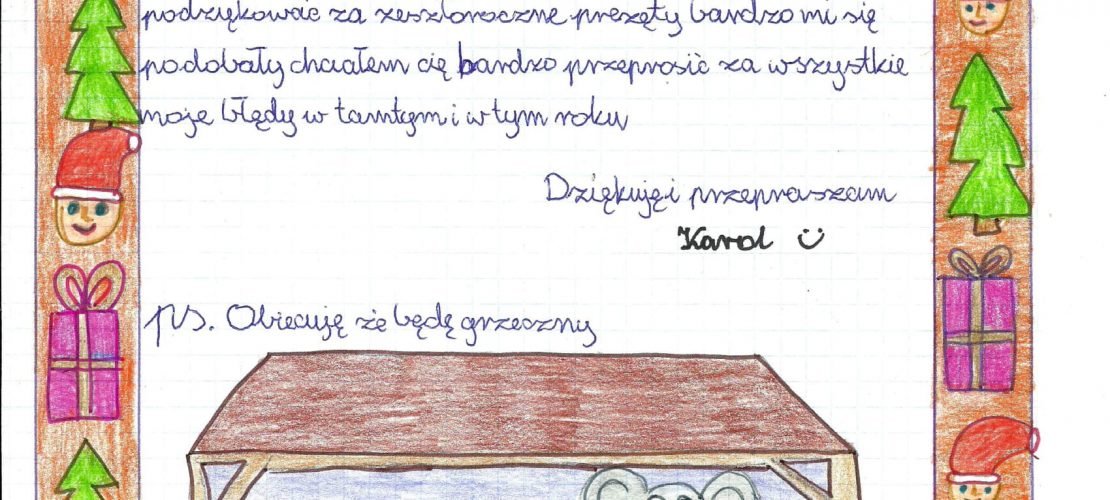 podziękować za zeszłoroczne prezęty bardzo mi się
podobały chciałem cię bardzo przeprosić za wszystkie
moje błędy w tamtym i w tym roku
Dziękuję i przepraszam
Karol
ps. Obiecuję że będę grzeczny